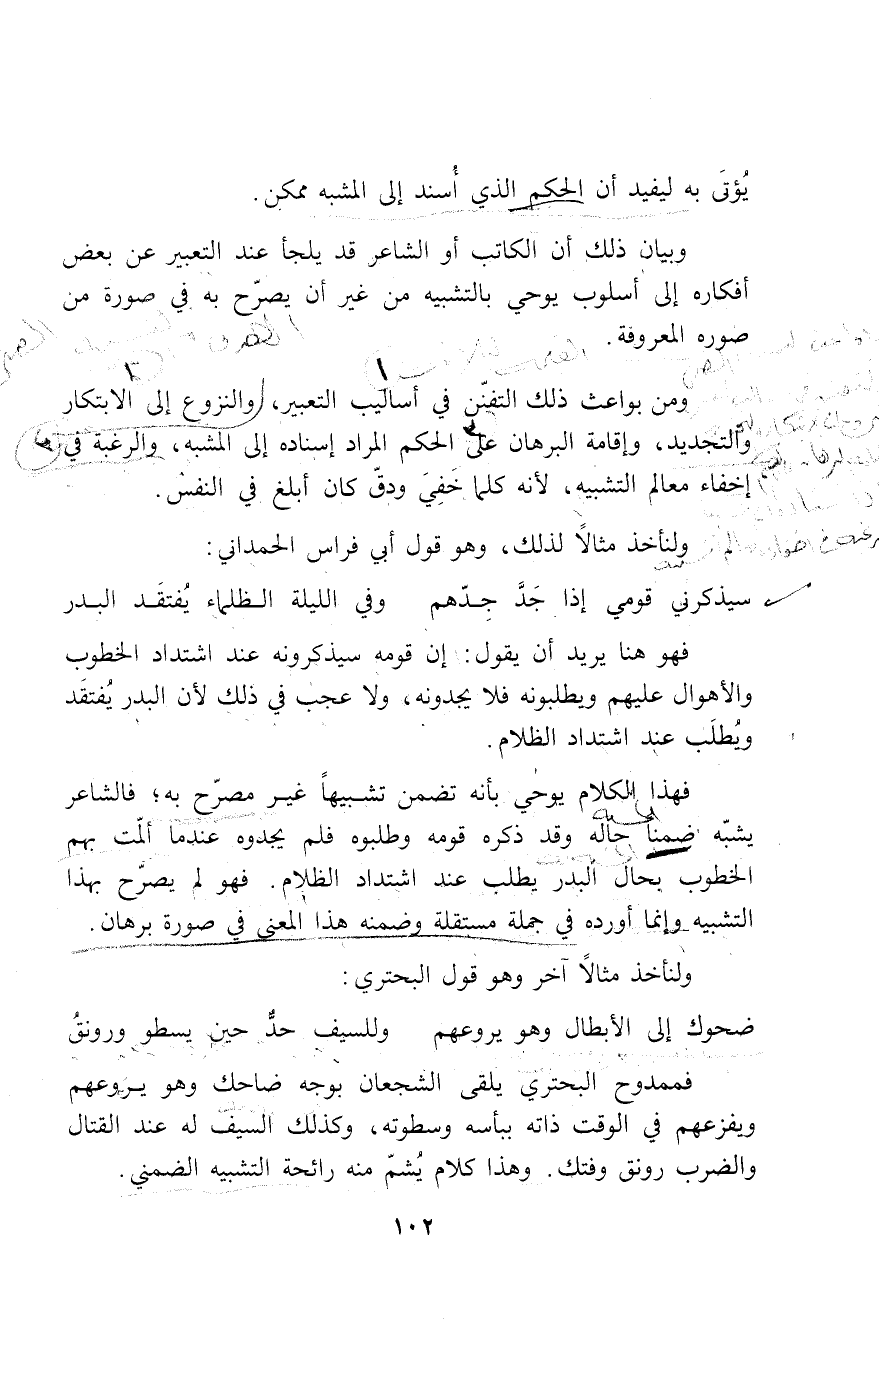 يُؤتَى به ليفيد أن الحكم الذي أُسند إلى المشبه ممكن.
وبيان ذلك أن الكاتب أو الشاعر قد يلجأ عند التعبير عن بعض
أفكاره إلى أسلوب يوحي بالتشبيه من غير أن يصرّح به في صورة من
صوره المعروفة.
ومن بواعث ذلك التفنّن في أساليب التعبير، والنزوع إلى الابتكار
والتجديد، وإقامة البرهان على الحكم المراد إسناده إلى المشبه، والرغبة في
إخفاء معالم التشبيه، لأنه كلما خَفِيَ ودقّ كان أبلغ في النفس.
ولنأخذ مثالًا لذلك، وهو قول أبي فراس الحمداني:
سيذكرني قومي إذا جَدَّ جدّهم وفي الليلة الظلماء يُفتقَد البدر
فهو هنا يريد أن يقول: إن قومه سيذكرونه عند اشتداد الخطوب
والأهوال عليهم ويطلبونه فلا يجدونه، ولا عجب في ذلك لأن البدر يُفتقَد
ويُطلَب عند اشتداد الظلام.
فهذا الكلام يوحي بأنه تضمن تشبيهاً غير مصرّح به؛ فالشاعر
يشبّه ضمناً حاله وقد ذكره قومه وطلبوه فلم يجدوه عندما ألمّت بهم
الخطوب بحال البدر يطلب عند اشتداد الظلام. فهو لم يصرّح بهذا
التشبيه وإنما أورده في جملة مستقلة وضمنه هذا المعنى في صورة برهان.
ولنأخذ مثالًا آخر وهو قول البحتري:
ضحوك إلى الأبطال وهو يروعهم وللسيف حدٌّ حين يسطو ورونقُ
فممدوح البحتري يلقى الشجعان بوجه ضاحك وهو يروعهم
ويفزعهم في الوقت ذاته ببأسه وسطوته، وكذلك السيف له عند القتال
والضرب رونق وفتك. وهذا كلام يُشمّ منه رائحة التشبيه الضمني.
١٠٢